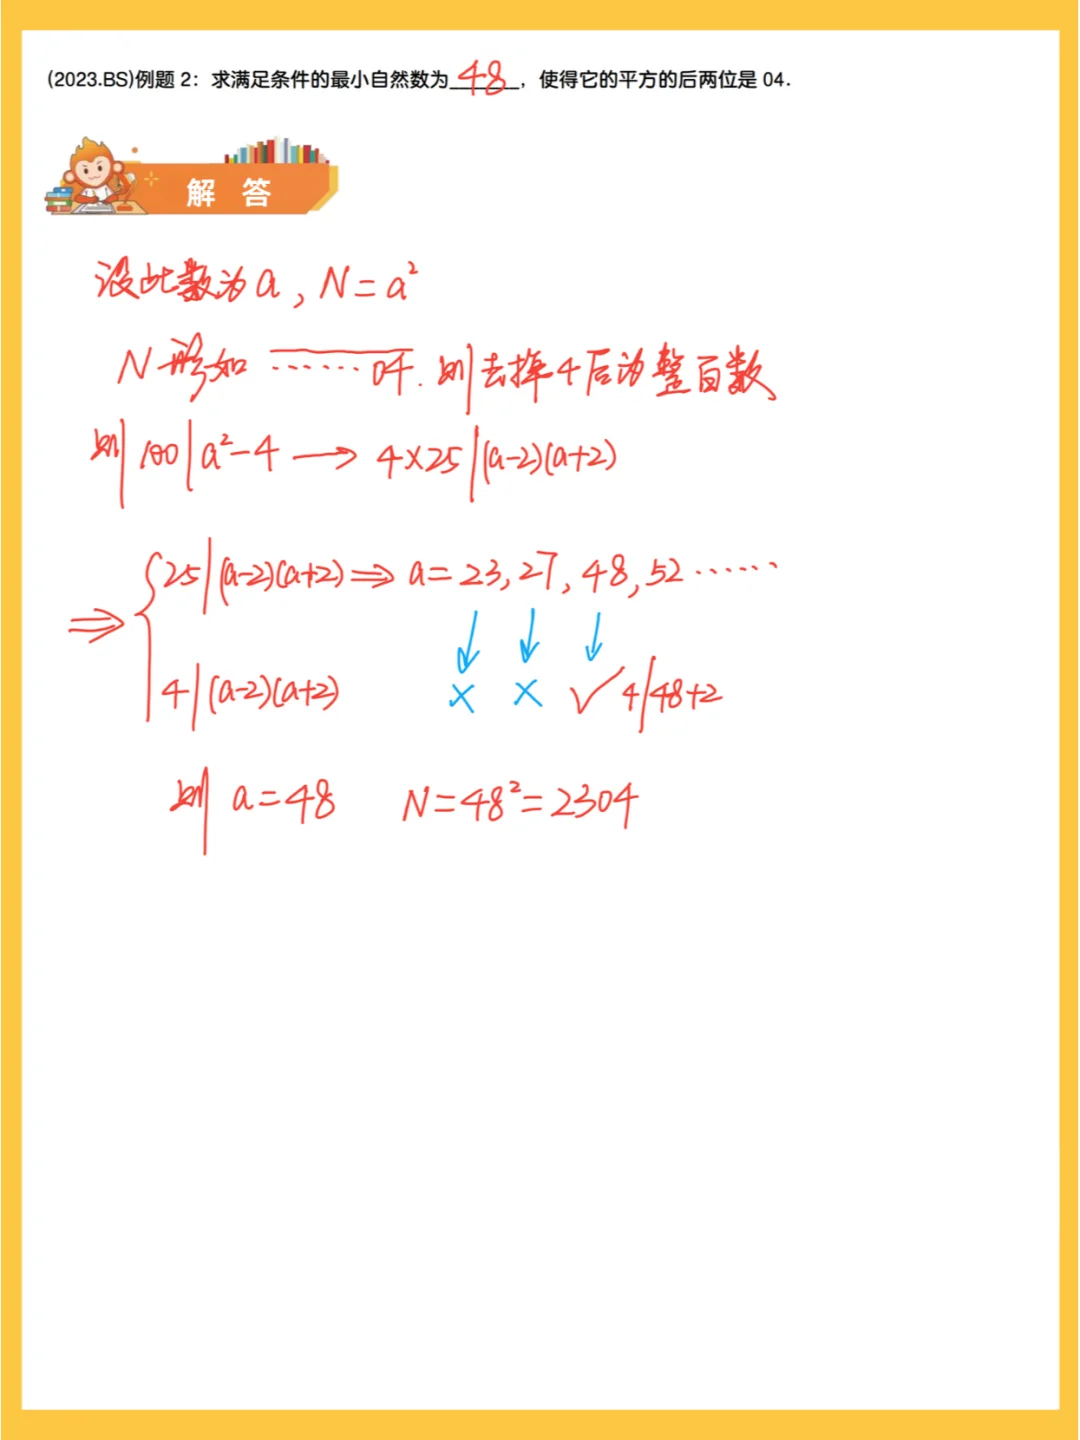 (2023.BS)例题 2：求满足条件的最小自然数为 48 ，使得它的平方的后两位是 04．
解 答
设此数为a，N=a²
N形如 ……04. 则去掉4后为整百数
则 100|a²-4 → 4×25|(a-2)(a+2)
25|(a-2)(a+2) ⇒ a=23,27,48,52……
⇒
4|(a-2)(a+2) × × ✓ 4|48+2
则 a=48 N=48²=2304